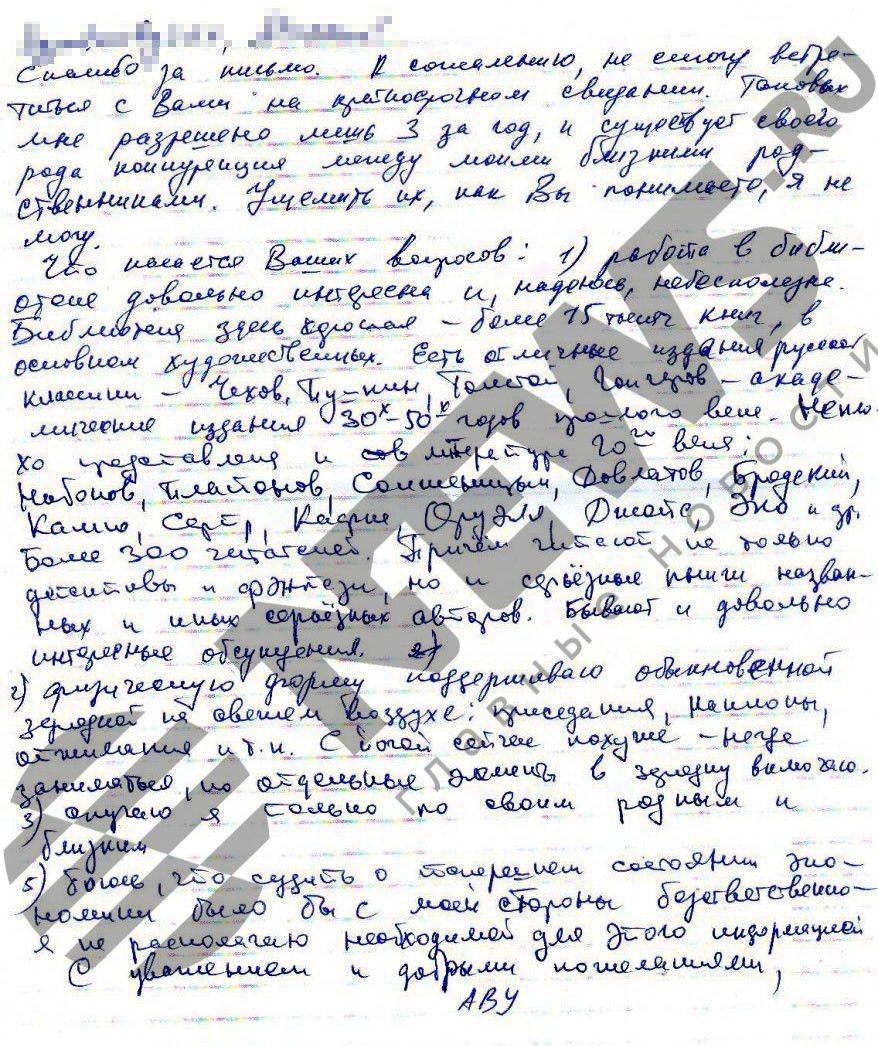 Спасибо за письмо. К сожалению, не смогу встре-
титься с Вами на краткосрочном свидании. Таковых
мне разрешено лишь 3 за год, и существует своего
рода конкуренция между моими близкими род-
ственниками. Ущемить их, как Вы понимаете, я не
могу.
Что касается Ваших вопросов: 1) работа в библи-
отеке довольно интересна и, надеюсь, небесполезна.
Библиотека здесь хорошая – более 15 тысяч книг, в
основном художественных. Есть отличные издания русской
классики – Чехов, Пушкин, Толстой, Гончаров – акаде-
мические издания 30х-50х годов прошлого века. Непло-
хо представлена и литература 20го века:
Набоков, Платонов, Солженицын, Довлатов, Бродский,
Камю, Сартр, Кафка, Оруэлл, Джойс, Эко и др.
Более 300 читателей. Причём читают не только
детективы и фэнтези, но и серьёзные книги назван-
ных и иных серьёзных авторов. Бывают и довольно
интересные обсуждения.
2) физическую форму поддерживаю обыкновенной
зарядкой на свежем воздухе: приседания, наклоны,
отжимания и т.п. С йогой сейчас похуже – негде
заниматься, но отдельные элементы в зарядку включаю.
3) скучаю я только по своим родным и
близким
5) боюсь, что судить о теперешнем состоянии эко-
номики было бы с моей стороны безответственно –
я не располагаю необходимой для этого информацией
С уважением и добрыми пожеланиями,
АВУ
NEWS.RU
главные новости